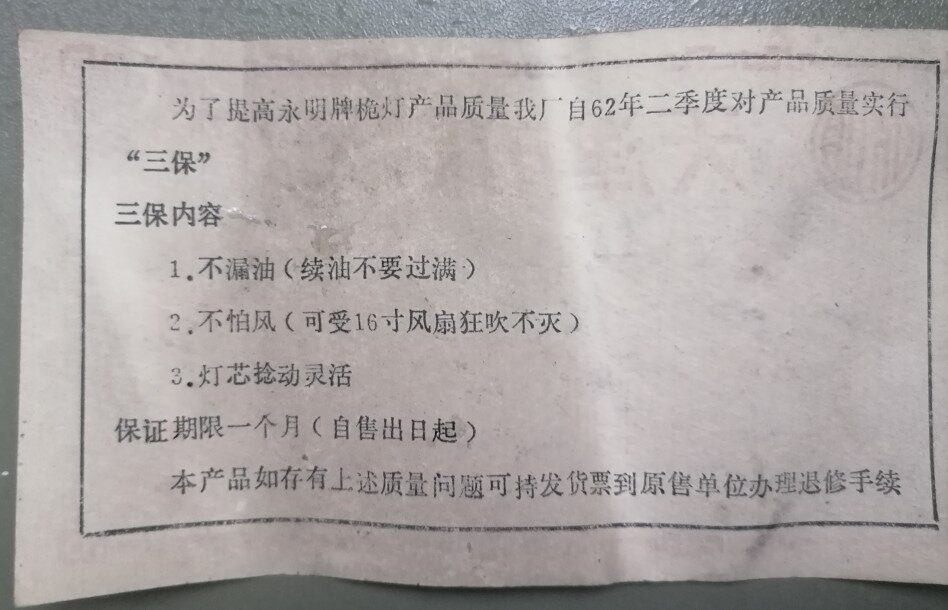 为了提高永明牌桅灯产品质量我厂自62年二季度对产品质量实行
“三保”
三保内容
1.不漏油(续油不要过满)
2.不怕风(可受16寸风扇狂吹不灭)
3.灯芯捻动灵活
保证期限一个月(自售出日起)
本产品如存有上述质量问题可持发货票到原售单位办理退修手续